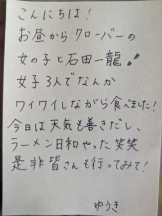 こんにちは!
お昼からクローバーの
女の子と石田一龍!!
女子3人でなんか
ワイワイしながら食べました!
今日は天気も善きだし、
ラーメン日和やった笑笑
是非皆さんも行ってみて!
ゆうき